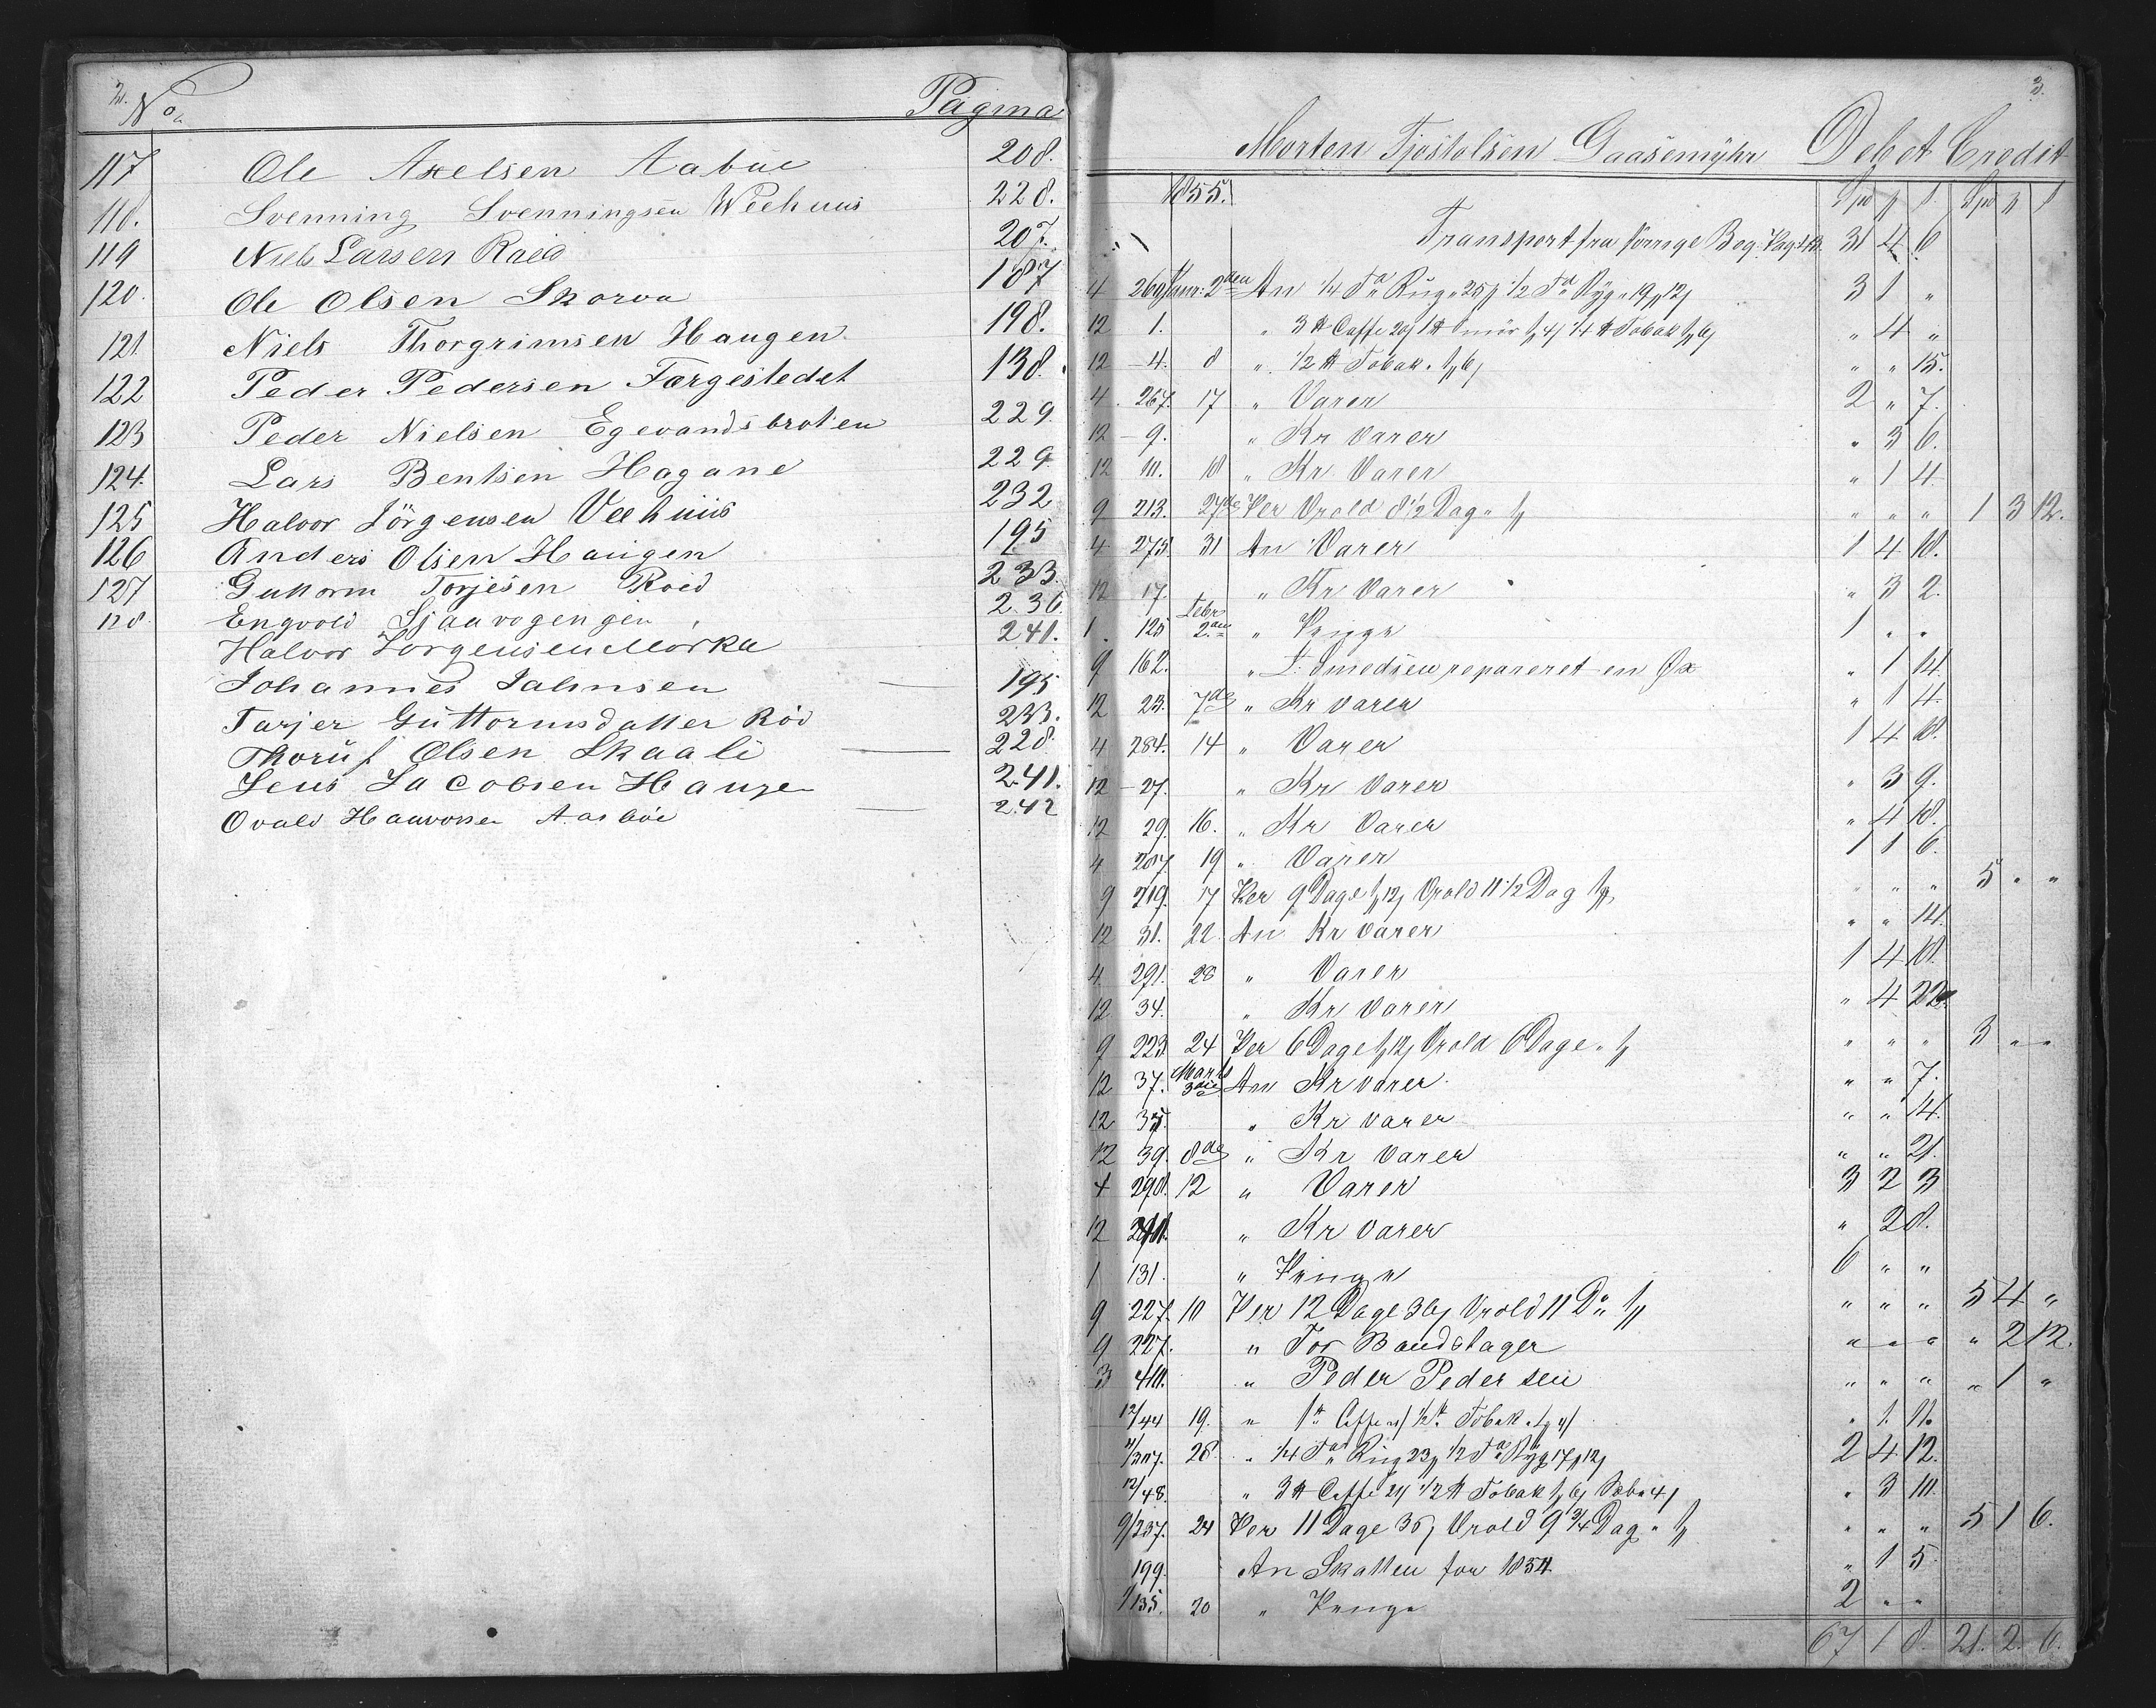 2.
No. Pagina
117 Ole Axelsen Aabue 208.
118. Svenning Svenningsen Weehuus 228.
119 Niels Larsen Röed 207.
120. Ole Olsen Skorva 187
121. Niels Thorgrimsen Haugen 198.
122 Peder Pedersen Færgestedet 138.
123 Peder Nielsen Egevandsbroten 229
124. Lars Bentsen Hagane 229
125 Halvor Jörgensen Veehuus 232
126 Anders Olsen Haugen 195
127 Guttorm Torjesen Roed 233.
128. Engvold 236
Halvor Jörgensen Morka 241.
Johannes Jahnsen 195
Tarjer Guttormsdatter Röd 233.
Thoruf Olsen Skaali 228
Jens Jacobsen Hauge 241.
Ovald Aasböe 242
3.
Morten Tjostolsen Gaasemyhr Debet Credit
1855. Spd β Spd β
Transport fra forrige Bog Pag 3 4 6
4 269 Janr: 2den An 1/4 Tde Rug 25 1/2 Tde Byg 19 12 3 1 "
12 1. " 3 ℔ Caffe 20 1 ℔ Smör 1/4 ℔ Tobak " 4 "
12 4. 8 " 1/2 ℔ Tobak " " 15.
4 267. 17 " Varer 2 " 7.
12 9. " Kr Varer " 3 6.
12 11. 18 " Kr Varer " 1 4.
9 213. 27de Per Vrold 8 1/2 Dag " " " 1 3 12.
4 275. 31 An Varer 1 4 18.
12 17. " Kr Varer " 3 2.
1 125 Febr 2den " Penge 1 " "
9 162. " Smedjen repareret en Öx " 1 14.
12 23. 7de " Kr varer " 1 4.
4 284. 14 " Varer 1 4 18.
12 27. " Kr Varer " 3 9.
12 29. 16. " Kr Varer " 4 18.
4 287. 19 " Varer 1 1 6.
9 219. 17 Per 9 Dage Vrold 11 1/2 Dag " " " 5 " "
12 31. 22 An Kr varer " " 14.
4 291. 28 " Varer 1 4 18.
12 34. " Kr Varer " 4 22
9 223 24 Per 6 Dage Vrold 6 Dage " " " 3 " "
12 37. Marts 3die An Kr varer " " 7.
12 35. " Kr varer " " 14.
12 39. 8de " Kr varer " " 21.
4 298. 12 " Varer 3 2 3
12 " Kr varer " 2 8.
1 131. " Penge 6 " "
9 227. 10 Per 12 Dage 36 Vrold 11 Do " " " 5 4 "
9 227. " For Baandstager " " " " 2 12.
3 411. " Peder Pedersen " " " " 1 "
12/44 19. " 1 ℔ Caffe 1/2 ℔ Tobak " 1 11.
4/307. 28 " 1/4 Tde Rug 23 1/2 Tde Byg 17 12 2 4 12.
12/48. " 3 ℔ Caffe 21 1/2 ℔ Tobak 4 " 3 10.
9/237. 24 Per 11 Dage 36 Vrold 9 3/4 Dag " " " 5 1 6.
199. An Skatten for 1854. " 1 5.
1/135. 20 " Penge 2 " "
67 1 8. 21. 2. 6.